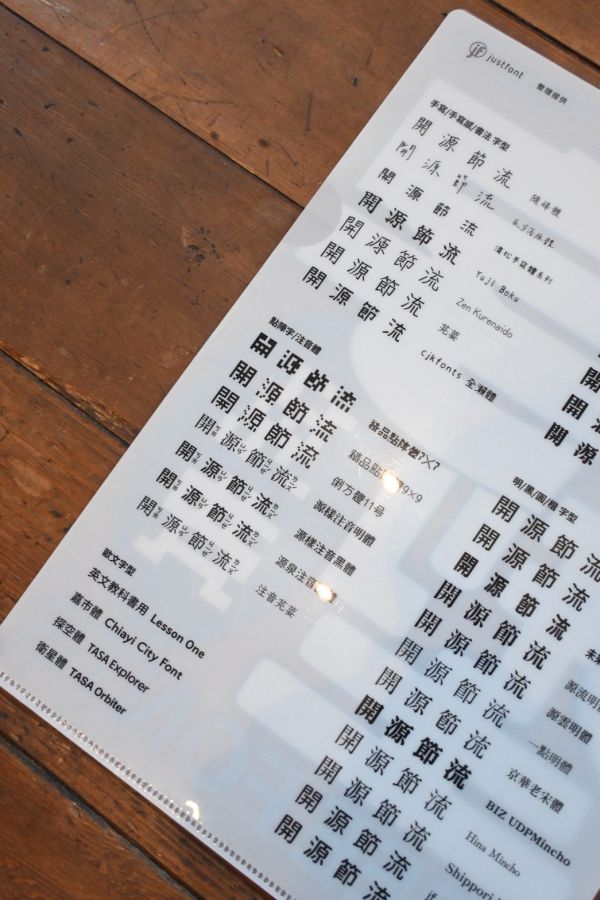 justfont 整理提供
手寫/手寫感/書法 字型
開源節流
開源節流
開源節流
開源節流 Yuji Boku
開源節流 Zen Kurenaido
開源節流 芫荽
開源節流 cjkfonts 全瀨體
點陣字/注音體
開源節流 精品點陣體7×7
開源節流 精品點陣體9×9
開源節流 俐方體11号
開源節流 源樣注音明體
開源節流 源樣注音黑體
開源節流 源泉注音
開源節流 注音芫荽
歐文字型
英文教科書用 Lesson One
嘉市體 Chiayi City Font
探空體 TASA Explorer
衛星體 TASA Orbiter
明/黑/圓/楷 字型
開源節流
開源節流
開源節流 源流明體
開源節流 源雲明體
開源節流 一點明體
開源節流 京華老宋體
開源節流 BIZ UDPMincho
開源節流 Hina Mincho
開源節流 Shippori
開源節流 jf
開源節流